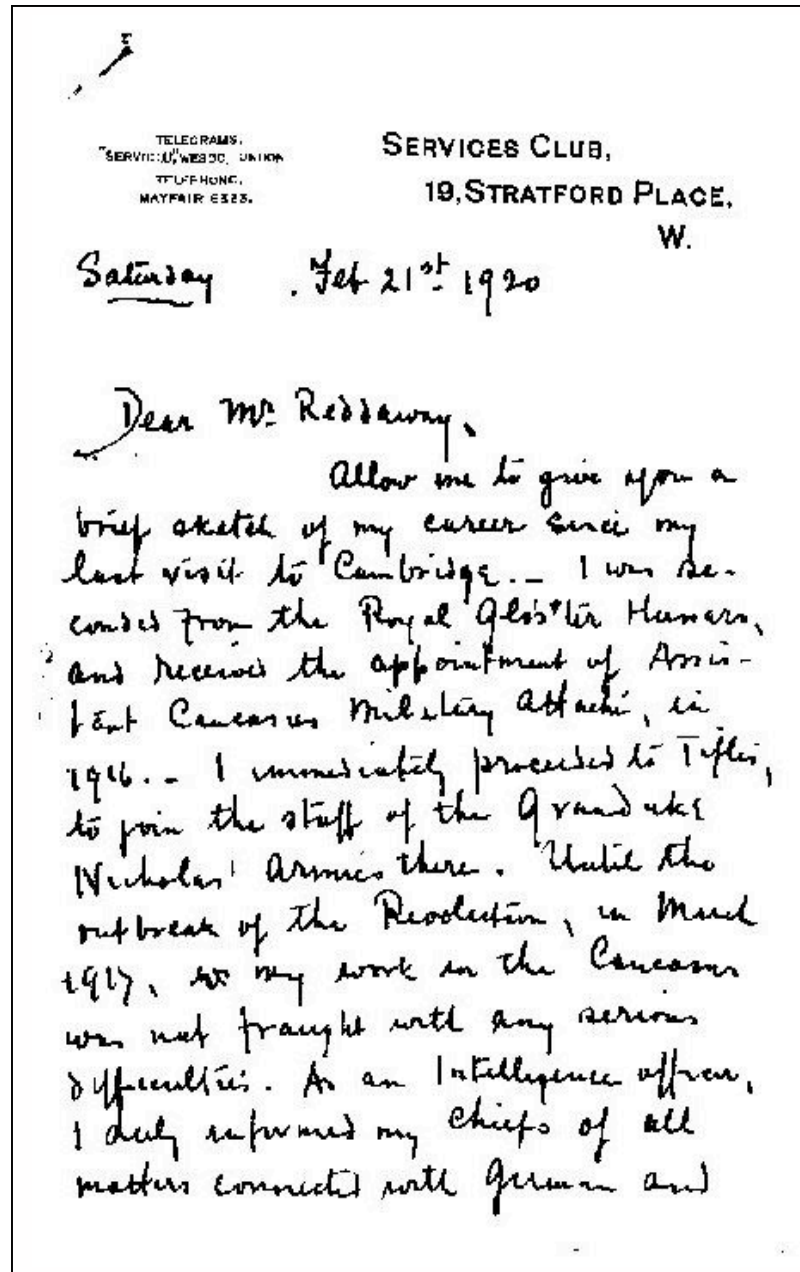 TELEGRAMS,
TELEPHONE,
MAYFAIR 6323.
SERVICES CLUB,
19, STRATFORD PLACE,
W.
Saturday . Feb 21st 1920
Dear Mr. Reddaway,
Allow me to give you a
brief sketch of my career since my
last visit to Cambridge. – I was se-
conded from the Royal Glos'ter Hussars,
and received the appointment of Assis-
tant Caucasus Military Attaché, in
1916. – I immediately proceeded to Tiflis,
to join the staff of the Granduke
Nicholas' Armies there. Until the
outbreak of the Revolution, in March
1917, my work in the Caucasus
was not fraught with any serious
difficulties. As an Intelligence officer,
I duly informed my Chiefs of all
matters connected with German and